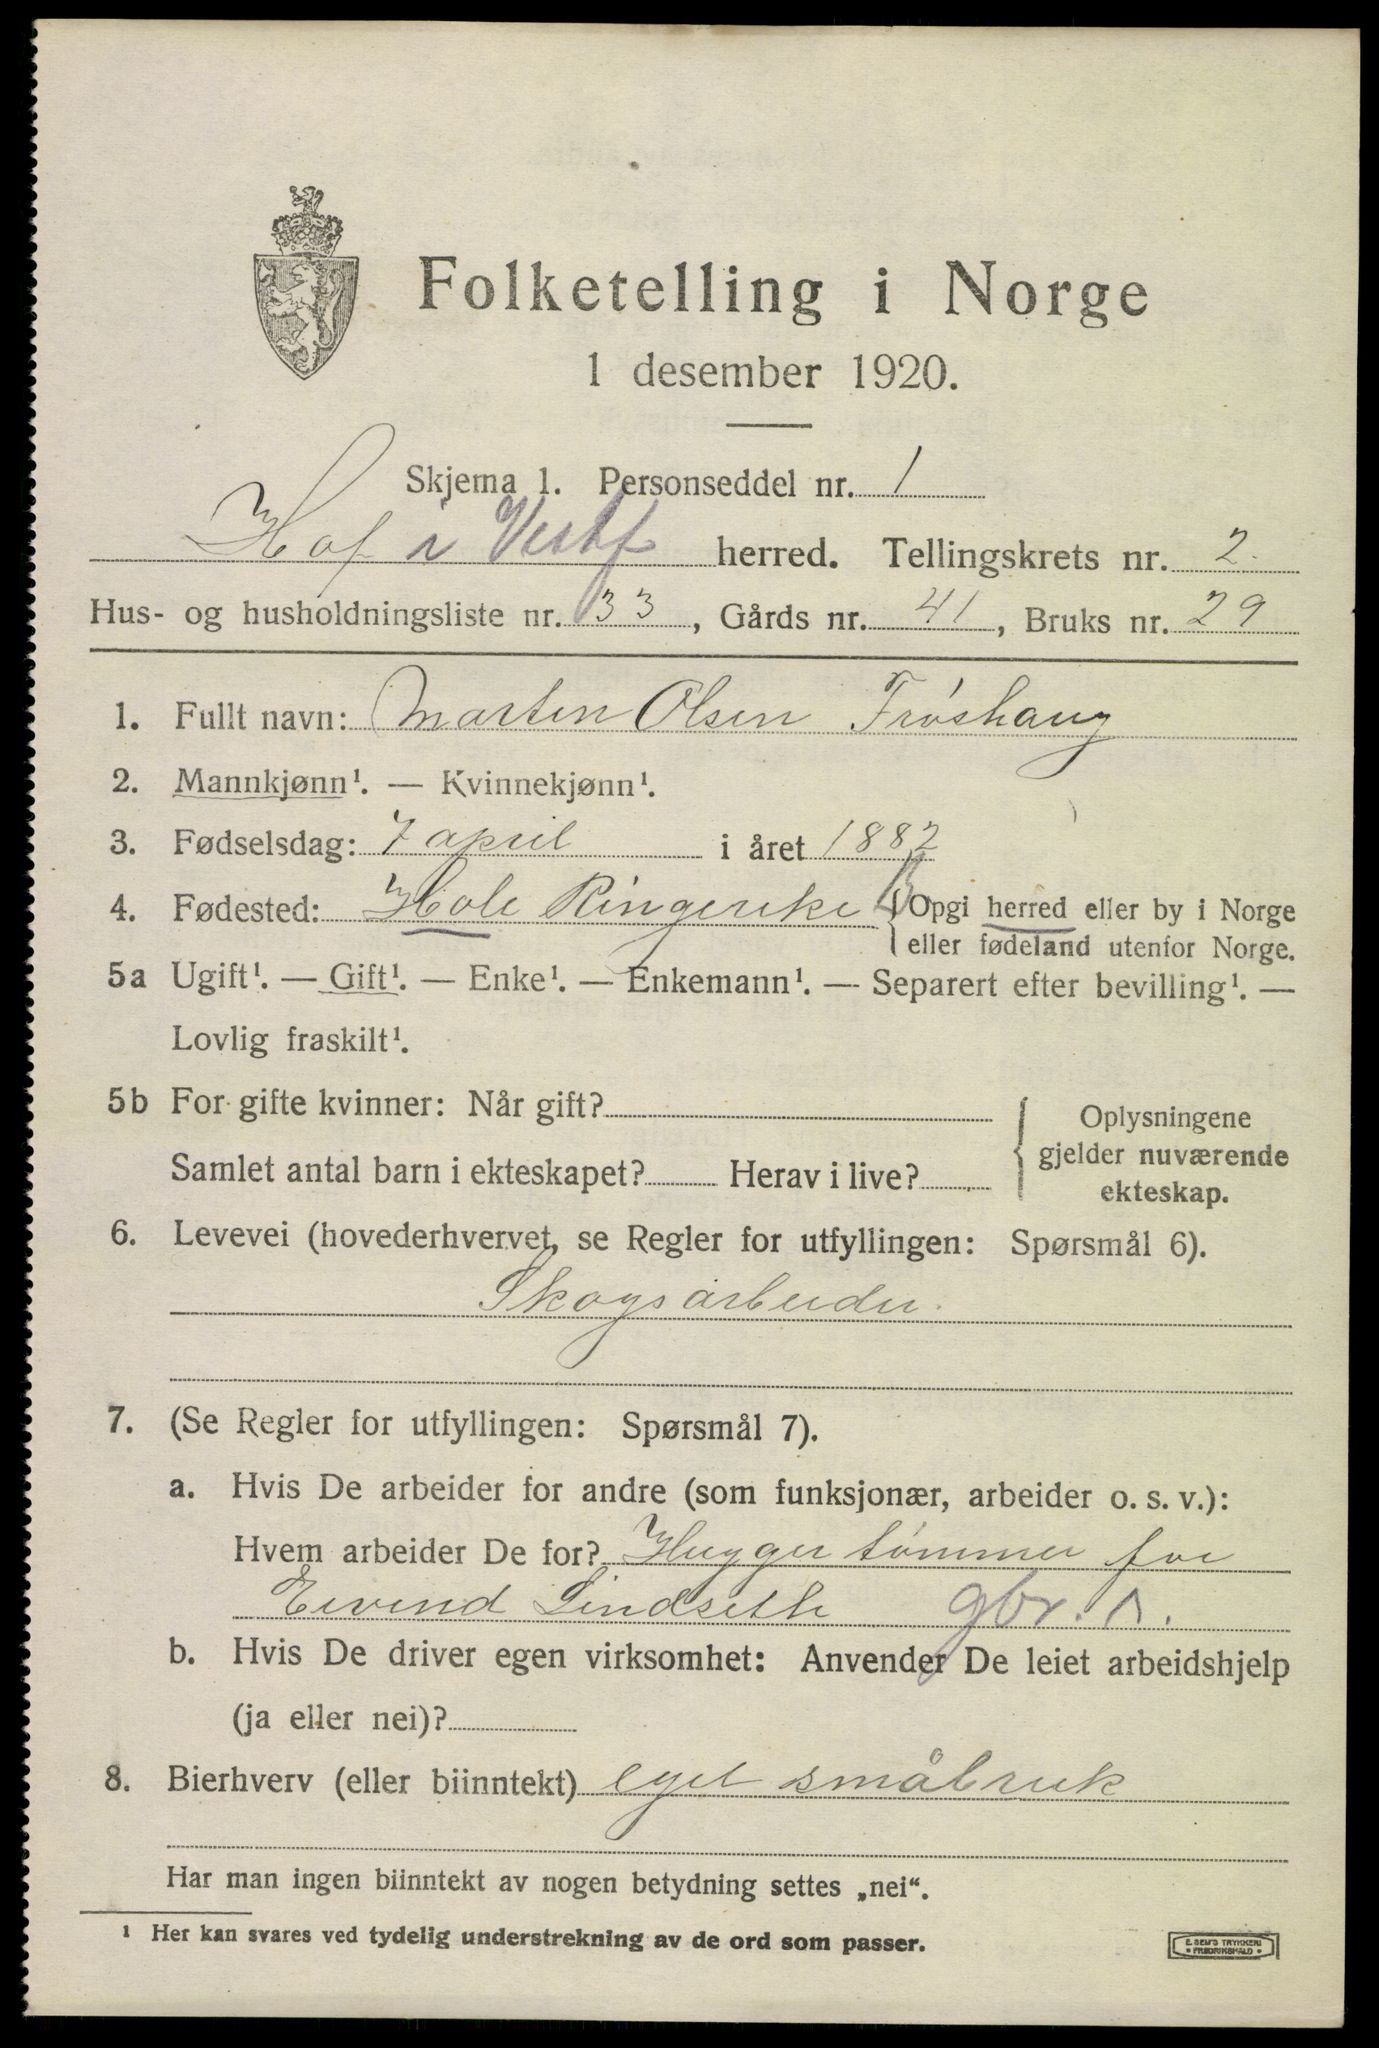 Folketelling i Norge
1 desember 1920.
Skjema 1. Personseddel nr. 1
Hof i Vestf herred. Tellingskrets nr. 2.
Hus- og husholdningsliste nr. 33, Gårds nr. 41, Bruks nr. 29
1. Fullt navn: Marten Olsen Frøshaug
2. Mannkjønn¹. — Kvinnekjønn¹.
3. Fødselsdag: 7 april i året 1882
4. Fødested: Hole Ringerike B { Opgi herred eller by i Norge
eller fødeland utenfor Norge.
5a Ugift¹. — Gift¹. — Enke¹. — Enkemann¹. — Separert efter bevilling¹. —
Lovlig fraskilt¹.
5b For gifte kvinner: Når gift? { Oplysningene
gjelder nuværende
Samlet antal barn i ekteskapet? Herav i live?
ekteskap.
6. Levevei (hovederhvervet, se Regler for utfyllingen: Spørsmål 6).
Skogsarbeider.
7. (Se Regler for utfyllingen: Spørsmål 7).
a. Hvis De arbeider for andre (som funksjonær, arbeider o. s. v.):
Hvem arbeider De for? Hugger tømmer for
Eivind Lindseth gbr.
b. Hvis De driver egen virksomhet: Anvender De leiet arbeidshjelp
(ja eller nei)?
8. Bierhverv (eller biinntekt) eget småbruk
Har man ingen biinntekt av nogen betydning settes „nei“.
¹ Her kan svares ved tydelig understrekning av de ord som passer.
E. SEM'S TRYKKERI
• FREDRIKSHALD •